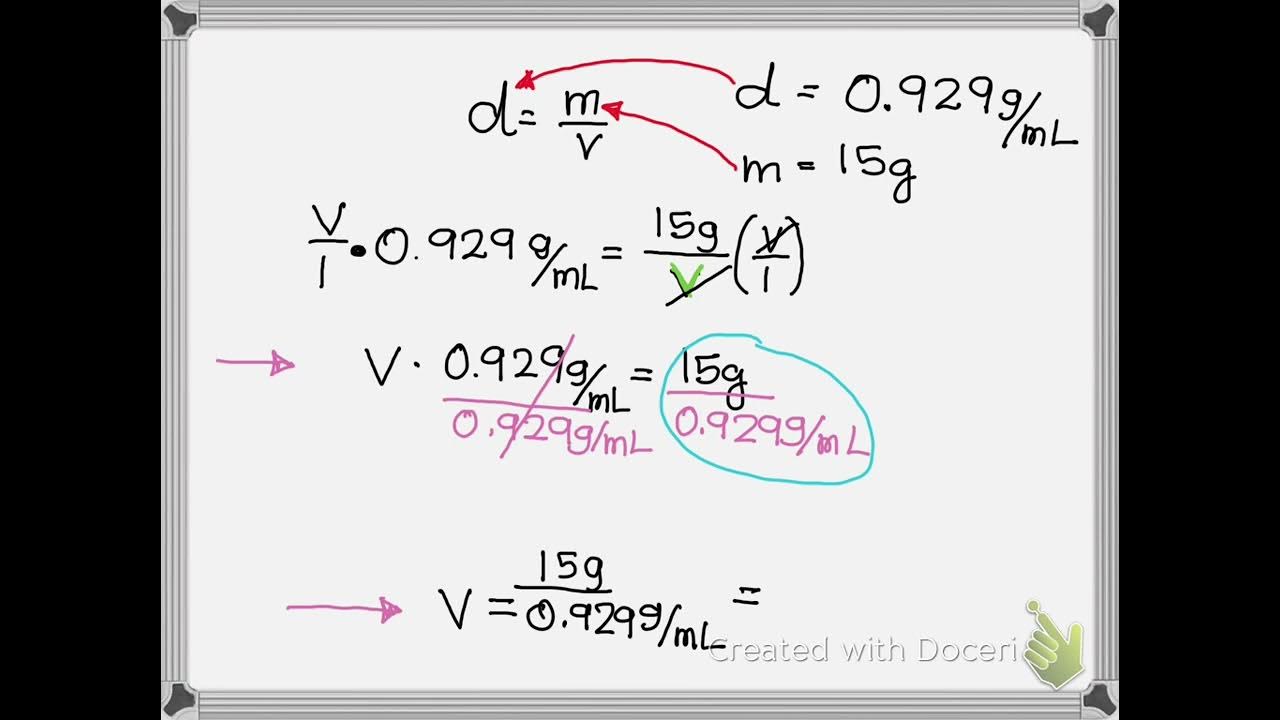 d = m/v
d = 0.929g/mL
m = 15g
V/1 • 0.929g/mL = 15g/V (V/1)
V · 0.929g/mL / 0.929g/mL = 15g / 0.929g/mL
V = 15g / 0.929g/mL =
Created with Doceri